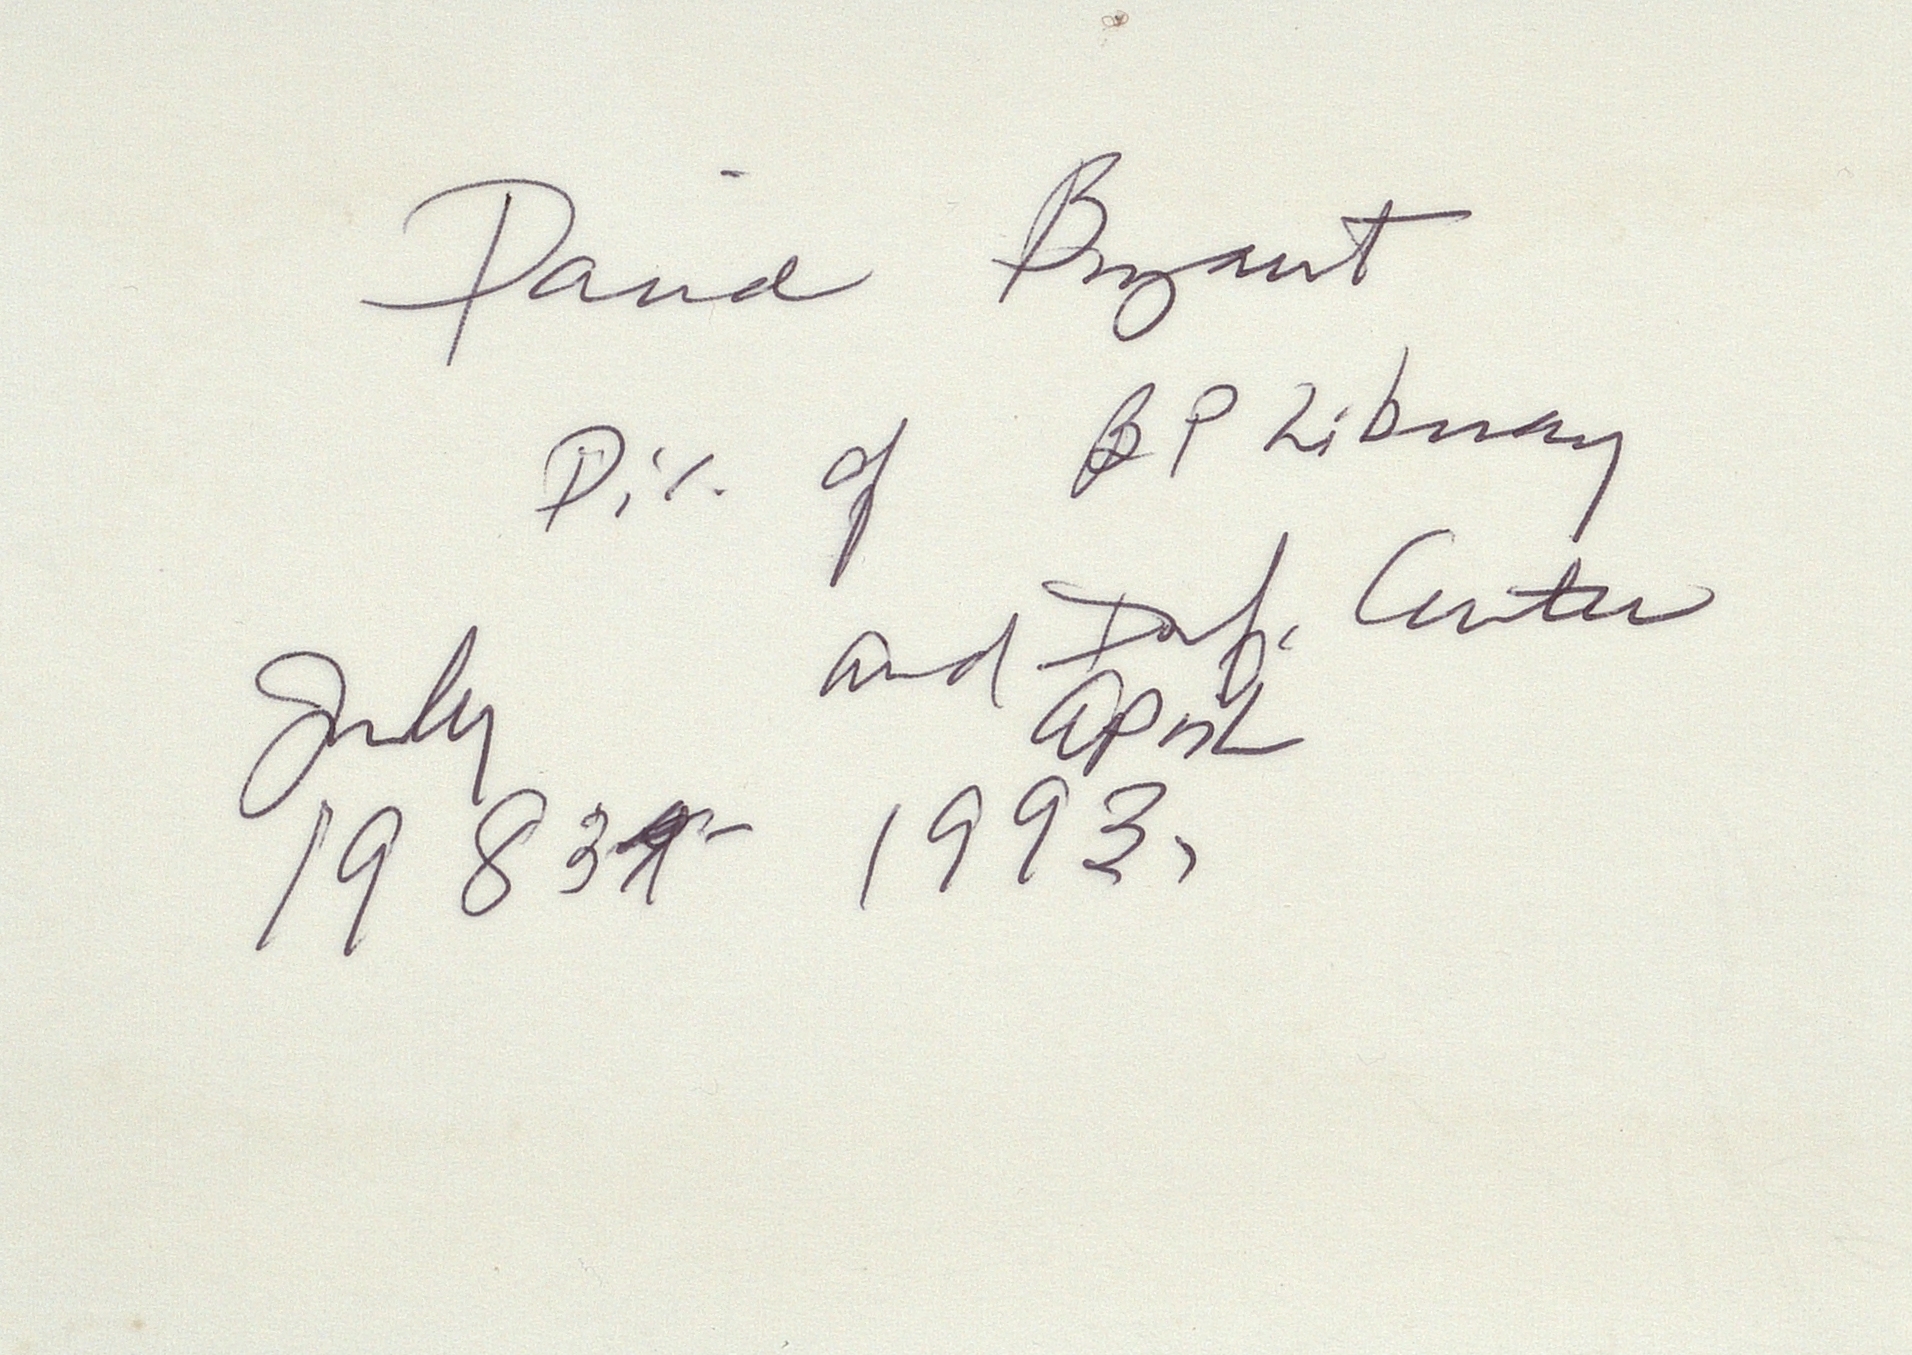 David Bryant
Dir. of BP Library
and Inf. Center
July April
1983 - 1993.